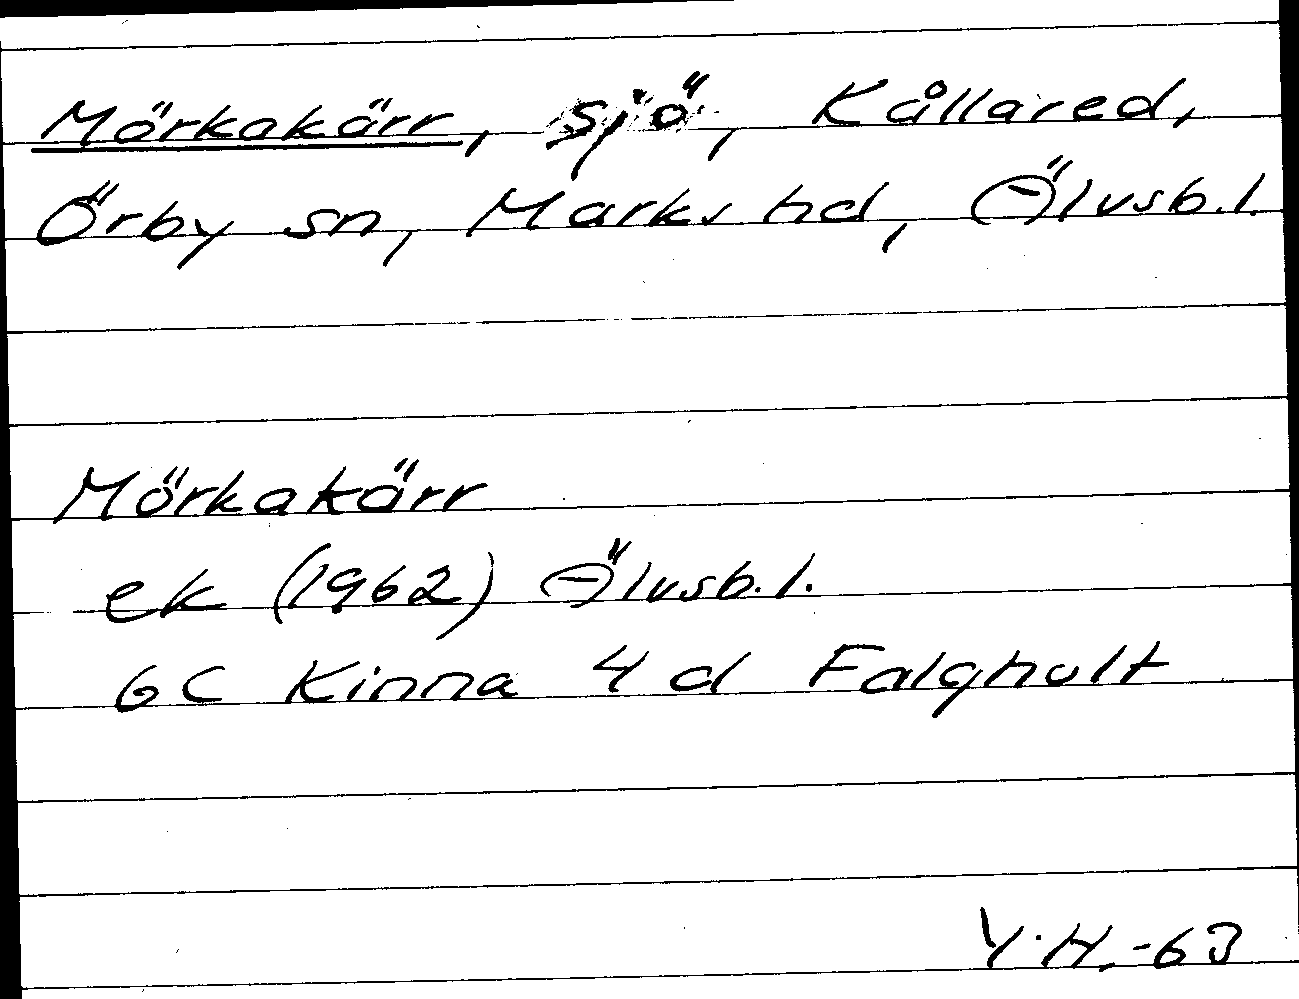 Mörkakärr, sjö, Kållared,
Örby sn, Marks hd, Älvsb.l.
Mörkakärr
ek (1962) Älvsb.l.
6C Kinna 4d Falghult
Y.H.-63